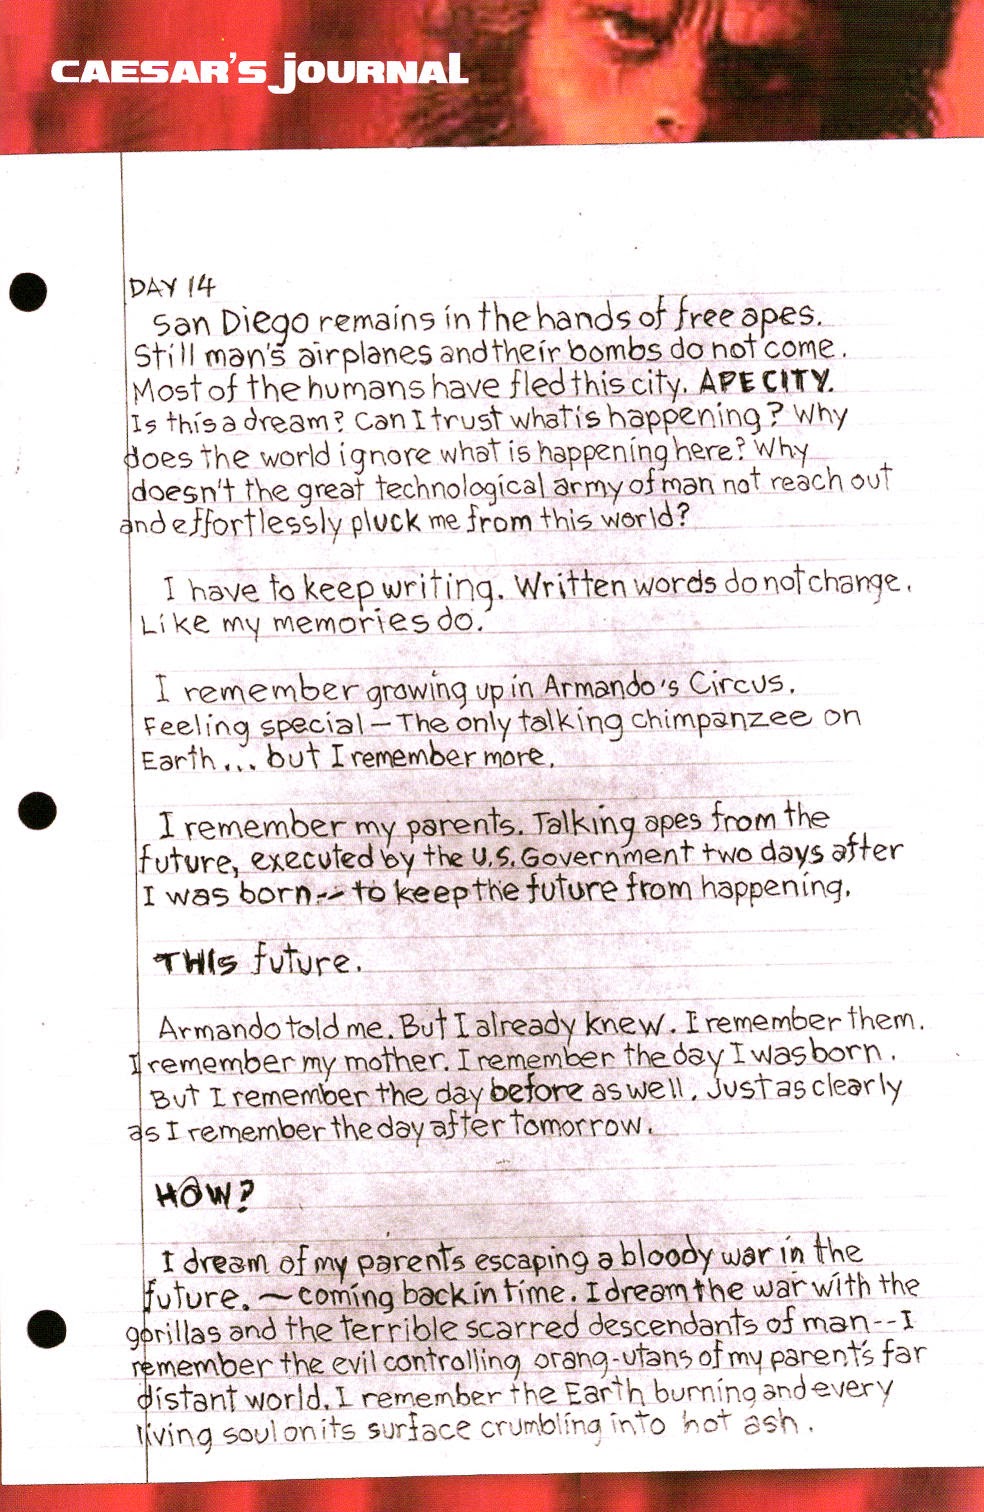 CAESAR'S JOURNAL
DAY 14
San Diego remains in the hands of free apes.
Still man's airplanes and their bombs do not come.
Most of the humans have fled this city. APE CITY.
Is this a dream? Can I trust what is happening? Why
does the world ignore what is happening here? Why
doesn't the great technological army of man not reach out
and effortlessly pluck me from this world?
I have to keep writing. Written words do not change.
Like my memories do.
I remember growing up in Armando's Circus.
Feeling special - The only talking chimpanzee on
Earth... but I remember more.
I remember my parents. Talking apes from the
future, executed by the U.S. Government two days after
I was born -- to keep the future from happening.
THIS future.
Armando told me. But I already knew. I remember them.
I remember my mother. I remember the day I was born.
But I remember the day before as well. Just as clearly
as I remember the day after tomorrow.
HOW?
I dream of my parents escaping a bloody war in the
future. ~ coming back in time. I dream the war with the
gorillas and the terrible scarred descendants of man -- I
remember the evil controlling orang-utans of my parent's far
distant world. I remember the Earth burning and every
living soul on its surface crumbling into hot ash.